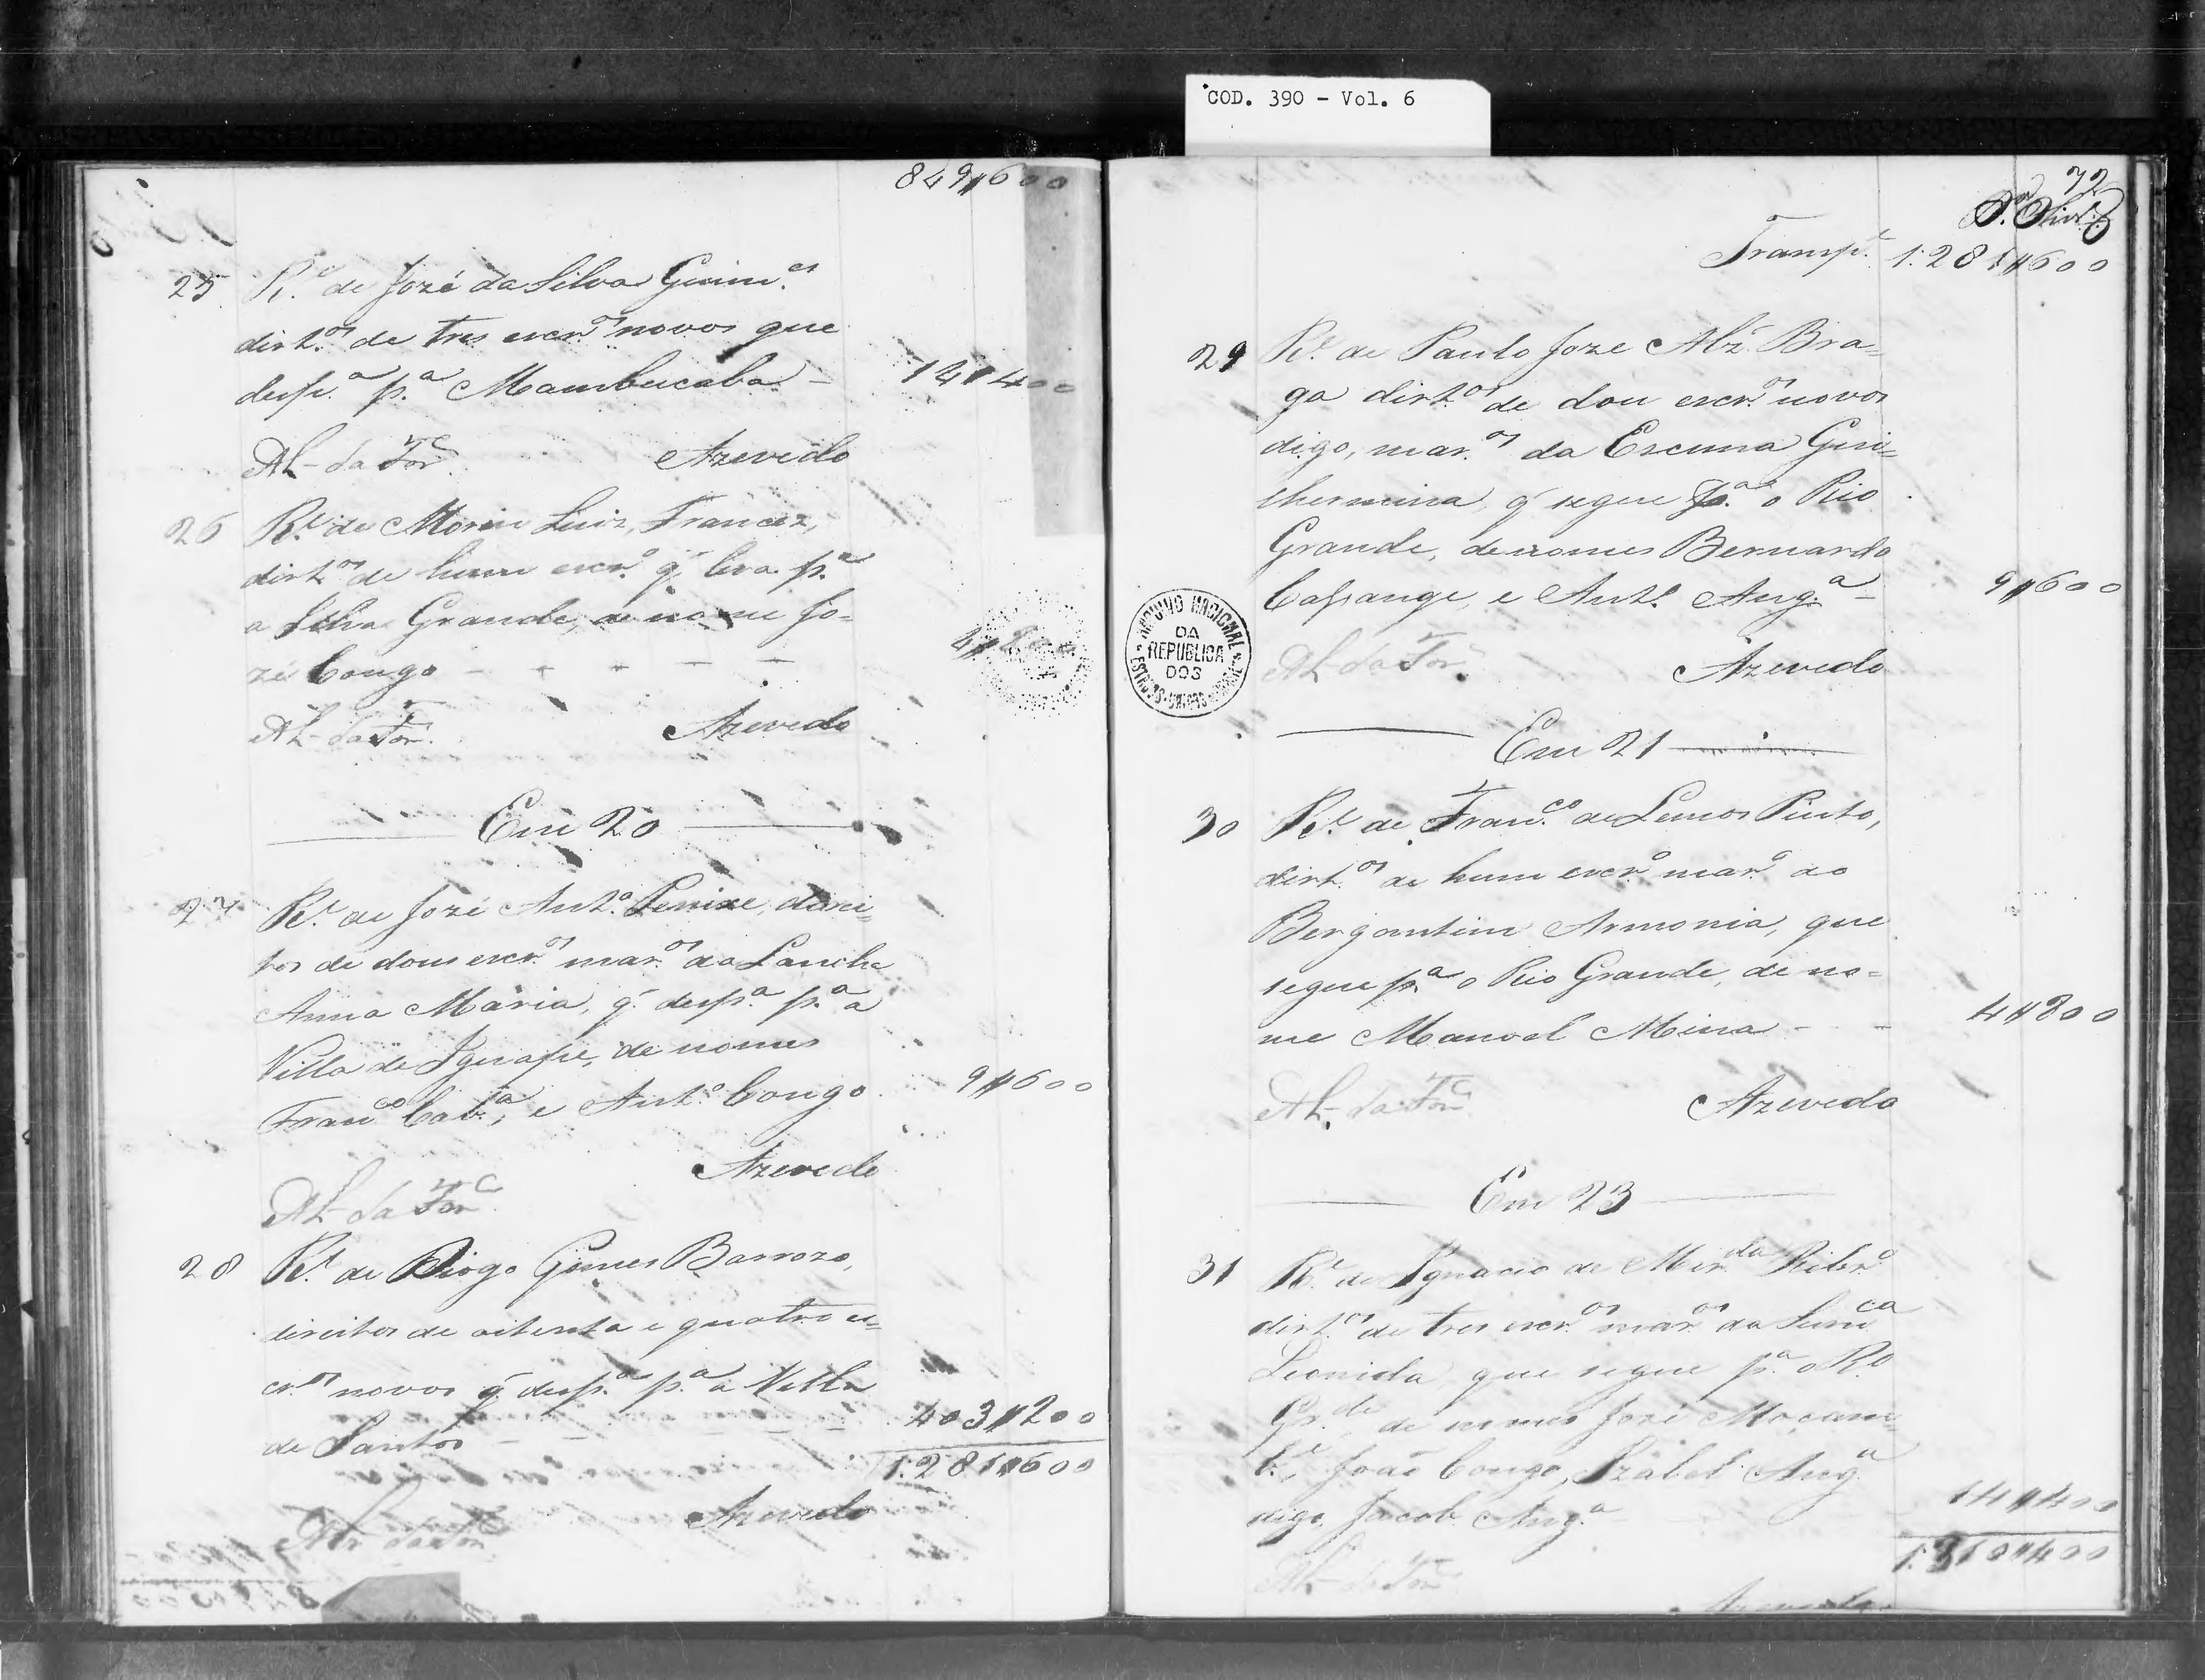 COD. 390 - Vol. 6
849$600
25 R.e de José da Silva Guim.es
dirt.os de tres escr.os novos que
desp.a p.a Mambucaba - 14$400
Azevedo
26 R.e de Morin Luiz, Francez,
dirt.os de hum escr.o q' leva p.a
a Ilha Grande, de nome Jo-
zé Congo - - - - - 4$800
Azevedo
Em 20
27 R.e de José Ant.o Lenixe, direi-
tos de dous escr.os mar.os da Lancha
Anna Maria, q' desp.a p.a a
Villa de Iguape, de nomes
Fran.co Cab.a, e Ant.o Congo 9$600
Azevedo
28 R.e de Diogo Gomes Barrozo,
direitos de oitenta e quatro es-
cr.os novos q' desp.a p.a a Villa
de Santos - - - - 403$200
1:281$600
Azevedo
72
Transp.e 1:281$600
29 R.e de Paulo Joze Alz' Bra-
ga dirt.os de dous escr.os novos
digo, mar.os da Escuna Gui-
lhermina, q' segue p.a o Rio
Grande, de nomes Bernardo
Cassange, e Ant.o Ang.a - 9$600
ARQUIVO NACIONAL DA REPUBLICA DOS ESTADOS UNIDOS
Azevedo
Em 21
30 R.e de Fran.co de Lemos Pinto,
dirt.os de hum escr.o mar.o do
Bergantim Armonia, que
segue p.a o Rio Grande, de no-
me Manoel Mina - - 4$800
Azevedo
Em 23
31 R.e de Ignacio de Mir.da Ribr.o
dirt.os de tres escr.os mar.os da Sum.ca
Leonida, que segue p.a o R.o
Gr.de de nomes José Moçam-
b.e, João Congo, Izabel Ang.a
digo, Jacob Ang.a 14$400
1:310$400
Azevedo